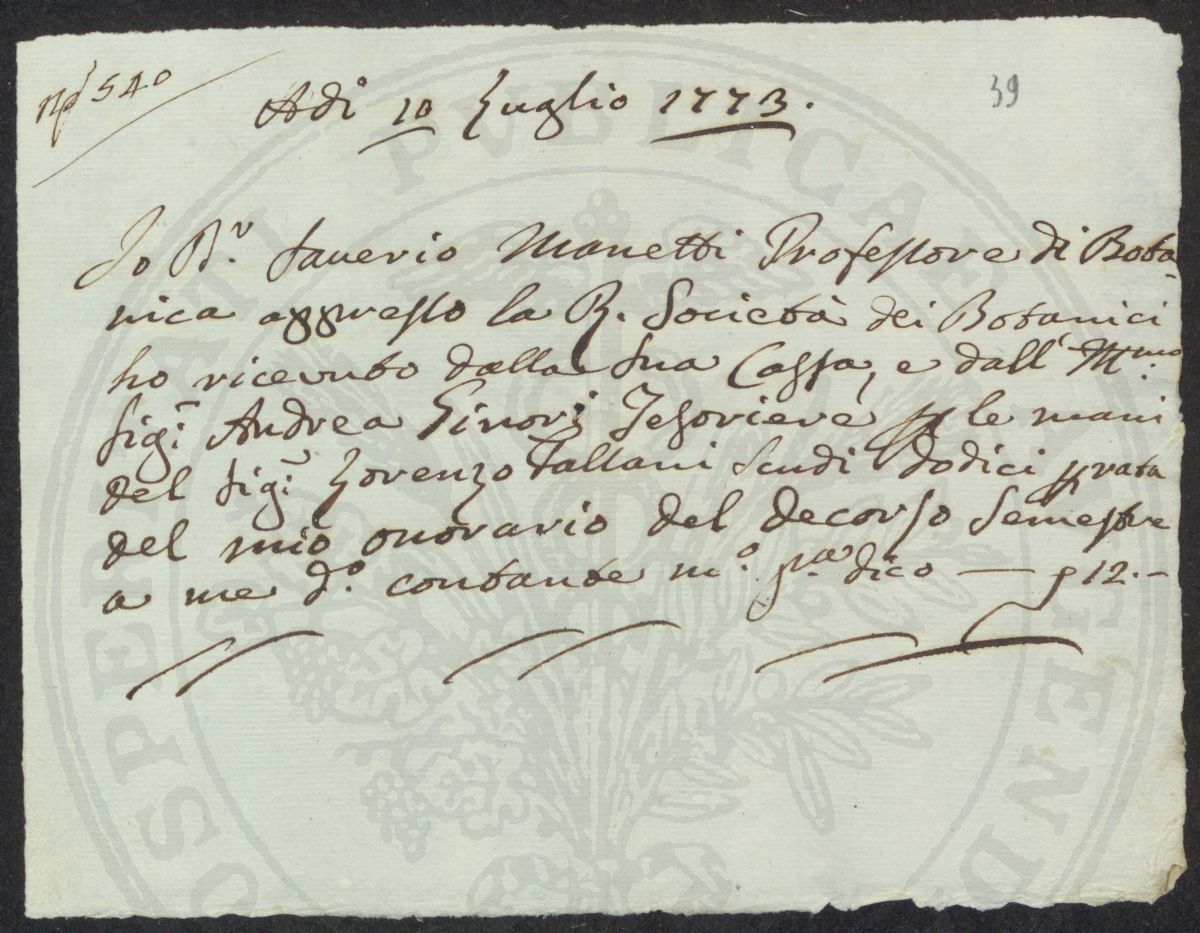 N.º 540
39
Adì 10 Luglio 1773.
Io D.r Saverio Manetti Professore di Bota-
nica appresso la R. Società dei Botanici
ho ricevuto dalla sua Cassa, e dall' Ill.mo
Sig.r Andrea Ginori Tesoriere p le mani
del Sig.r Lorenzo Tallani Scudi dodici p rata
del mio onorario del decorso Semestre
a me d.o contante m.o p.a dico — 12.–